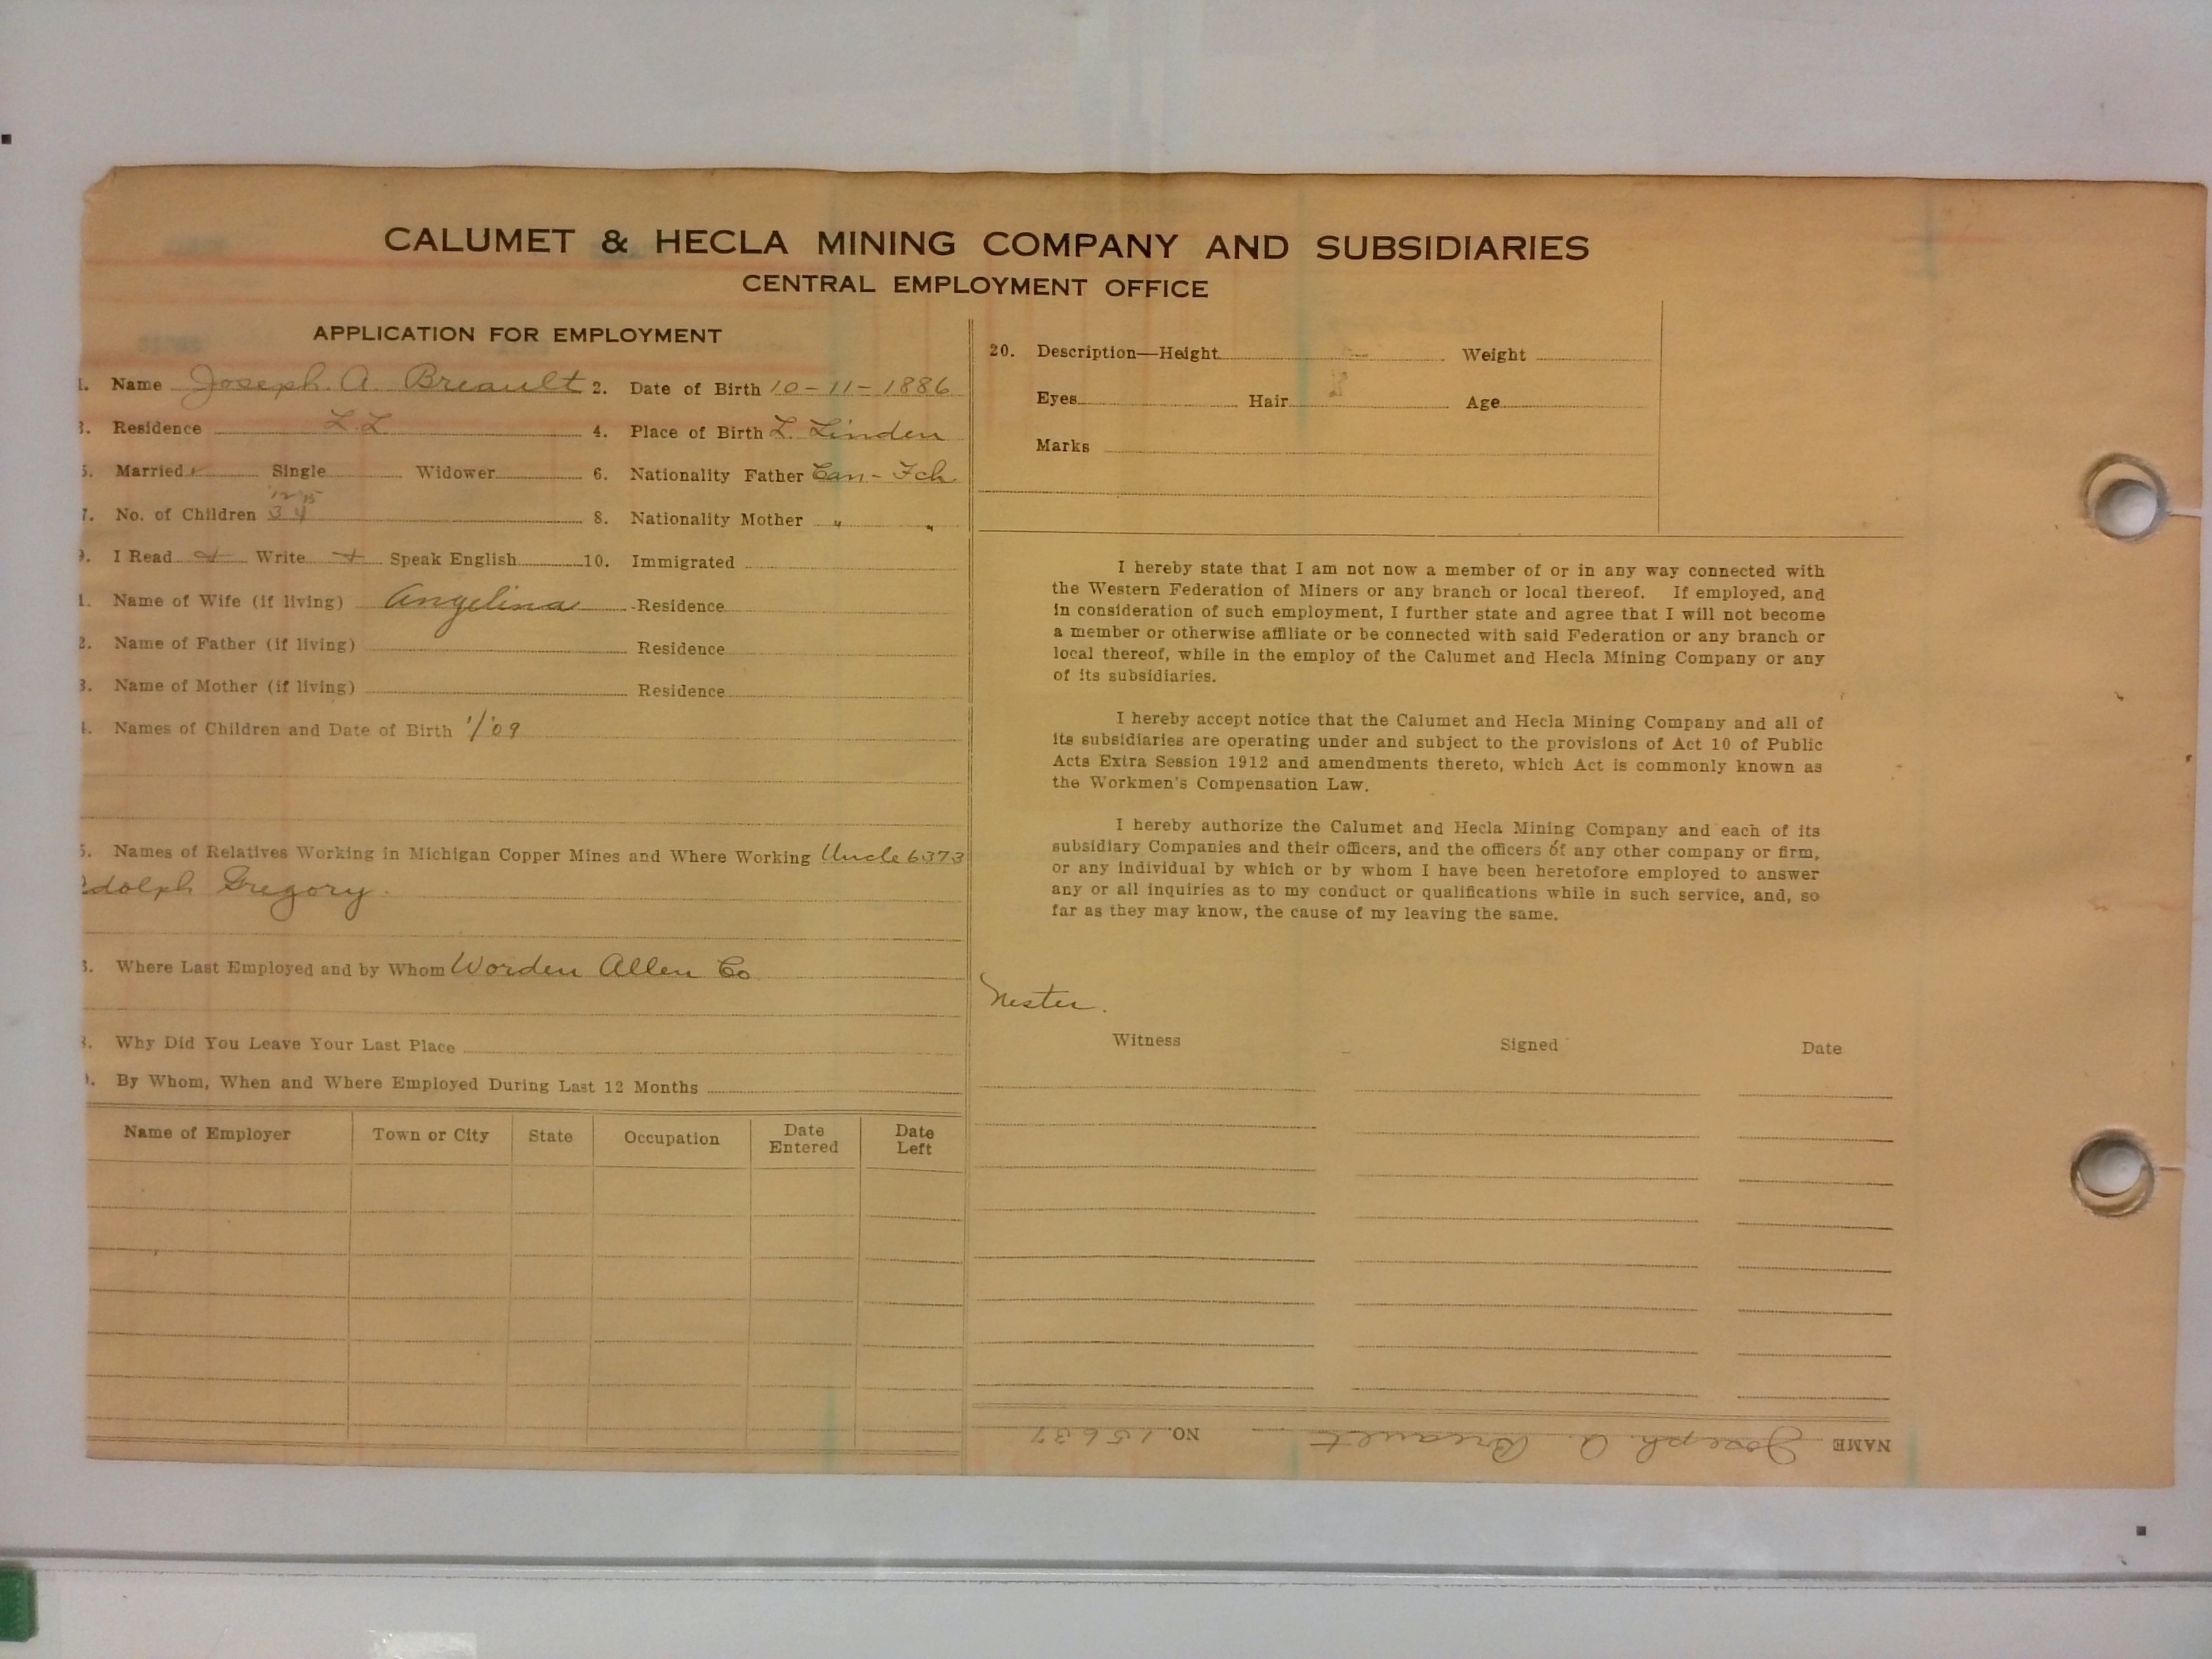 CALUMET & HECLA MINING COMPANY AND SUBSIDIARIES
CENTRAL EMPLOYMENT OFFICE
APPLICATION FOR EMPLOYMENT
1. Name Joseph. A. Breault 2. Date of Birth 10-11-1886
3. Residence L.L 4. Place of Birth L. Linden
5. Married Single Widower 6. Nationality Father Can-Fch
'12 '15
7. No. of Children 3 4 8. Nationality Mother " "
9. I Read + Write + Speak English 10. Immigrated
1. Name of Wife (if living) Angelina Residence
2. Name of Father (if living) Residence
3. Name of Mother (if living) Residence
4. Names of Children and Date of Birth '/'09
5. Names of Relatives Working in Michigan Copper Mines and Where Working Uncle 6373
dolph Gregory.
6. Where Last Employed and by Whom Worden Allen Co
8. Why Did You Leave Your Last Place
9. By Whom, When and Where Employed During Last 12 Months
Name of Employer Town or City State Occupation Date Entered Date Left
20. Description—Height Weight
Eyes Hair Age
Marks
I hereby state that I am not now a member of or in any way connected with
the Western Federation of Miners or any branch or local thereof. If employed, and
in consideration of such employment, I further state and agree that I will not become
a member or otherwise affiliate or be connected with said Federation or any branch or
local thereof, while in the employ of the Calumet and Hecla Mining Company or any
of its subsidiaries.
I hereby accept notice that the Calumet and Hecla Mining Company and all of
its subsidiaries are operating under and subject to the provisions of Act 10 of Public
Acts Extra Session 1912 and amendments thereto, which Act is commonly known as
the Workmen's Compensation Law.
I hereby authorize the Calumet and Hecla Mining Company and each of its
subsidiary Companies and their officers, and the officers of any other company or firm,
or any individual by which or by whom I have been heretofore employed to answer
any or all inquiries as to my conduct or qualifications while in such service, and, so
far as they may know, the cause of my leaving the same.
Nester.
Witness Signed Date
NAME Joseph. A. Breault NO. 15637